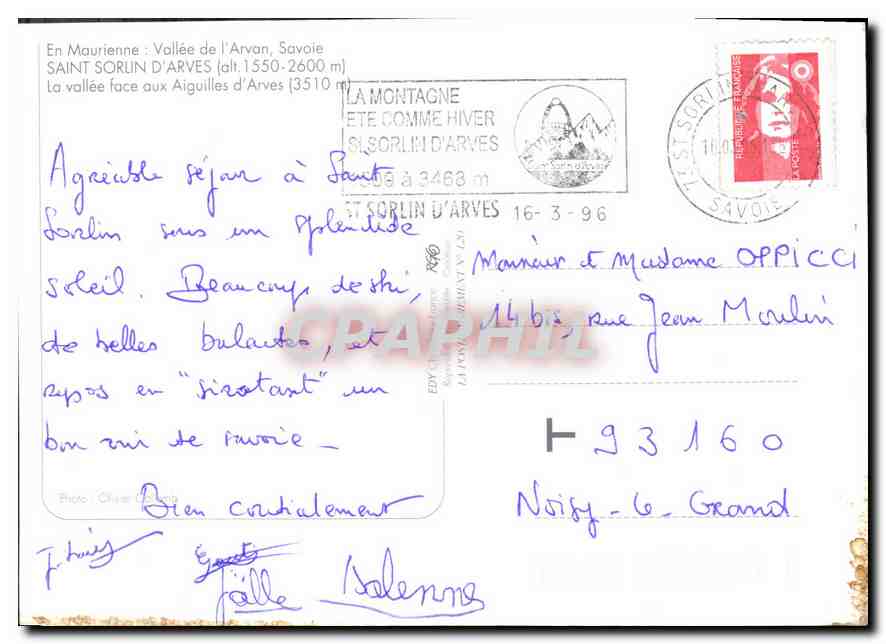 En Maurienne : Vallée de l'Arvan, Savoie
SAINT SORLIN D'ARVES (alt. 1550-2600 m)
La vallée face aux Aiguilles d'Arves (3510 m)
LA MONTAGNE
ETE COMME HIVER
St SORLIN D'ARVES
à 3468 m
Saint Sorlin d'Arves
ST SORLIN D'ARVES 16-3-96
73 ST SORLIN
SAVOIE
REPUBLIQUE FRANÇAISE
LA POSTE
Agréable séjour à Saint
Sorlin sous un splendide
soleil. Beaucoup de ski,
de belles balades, et
repos en "sirotant" un
bon vin de Savoie _
Bien cordialement
Joëlle Dalenne
Photo : Olivier
EDY
CPAPHIL
Monsieur et Madame OPPICCI
14 bis, rue Jean Moulin
93160
Noisy-le-Grand